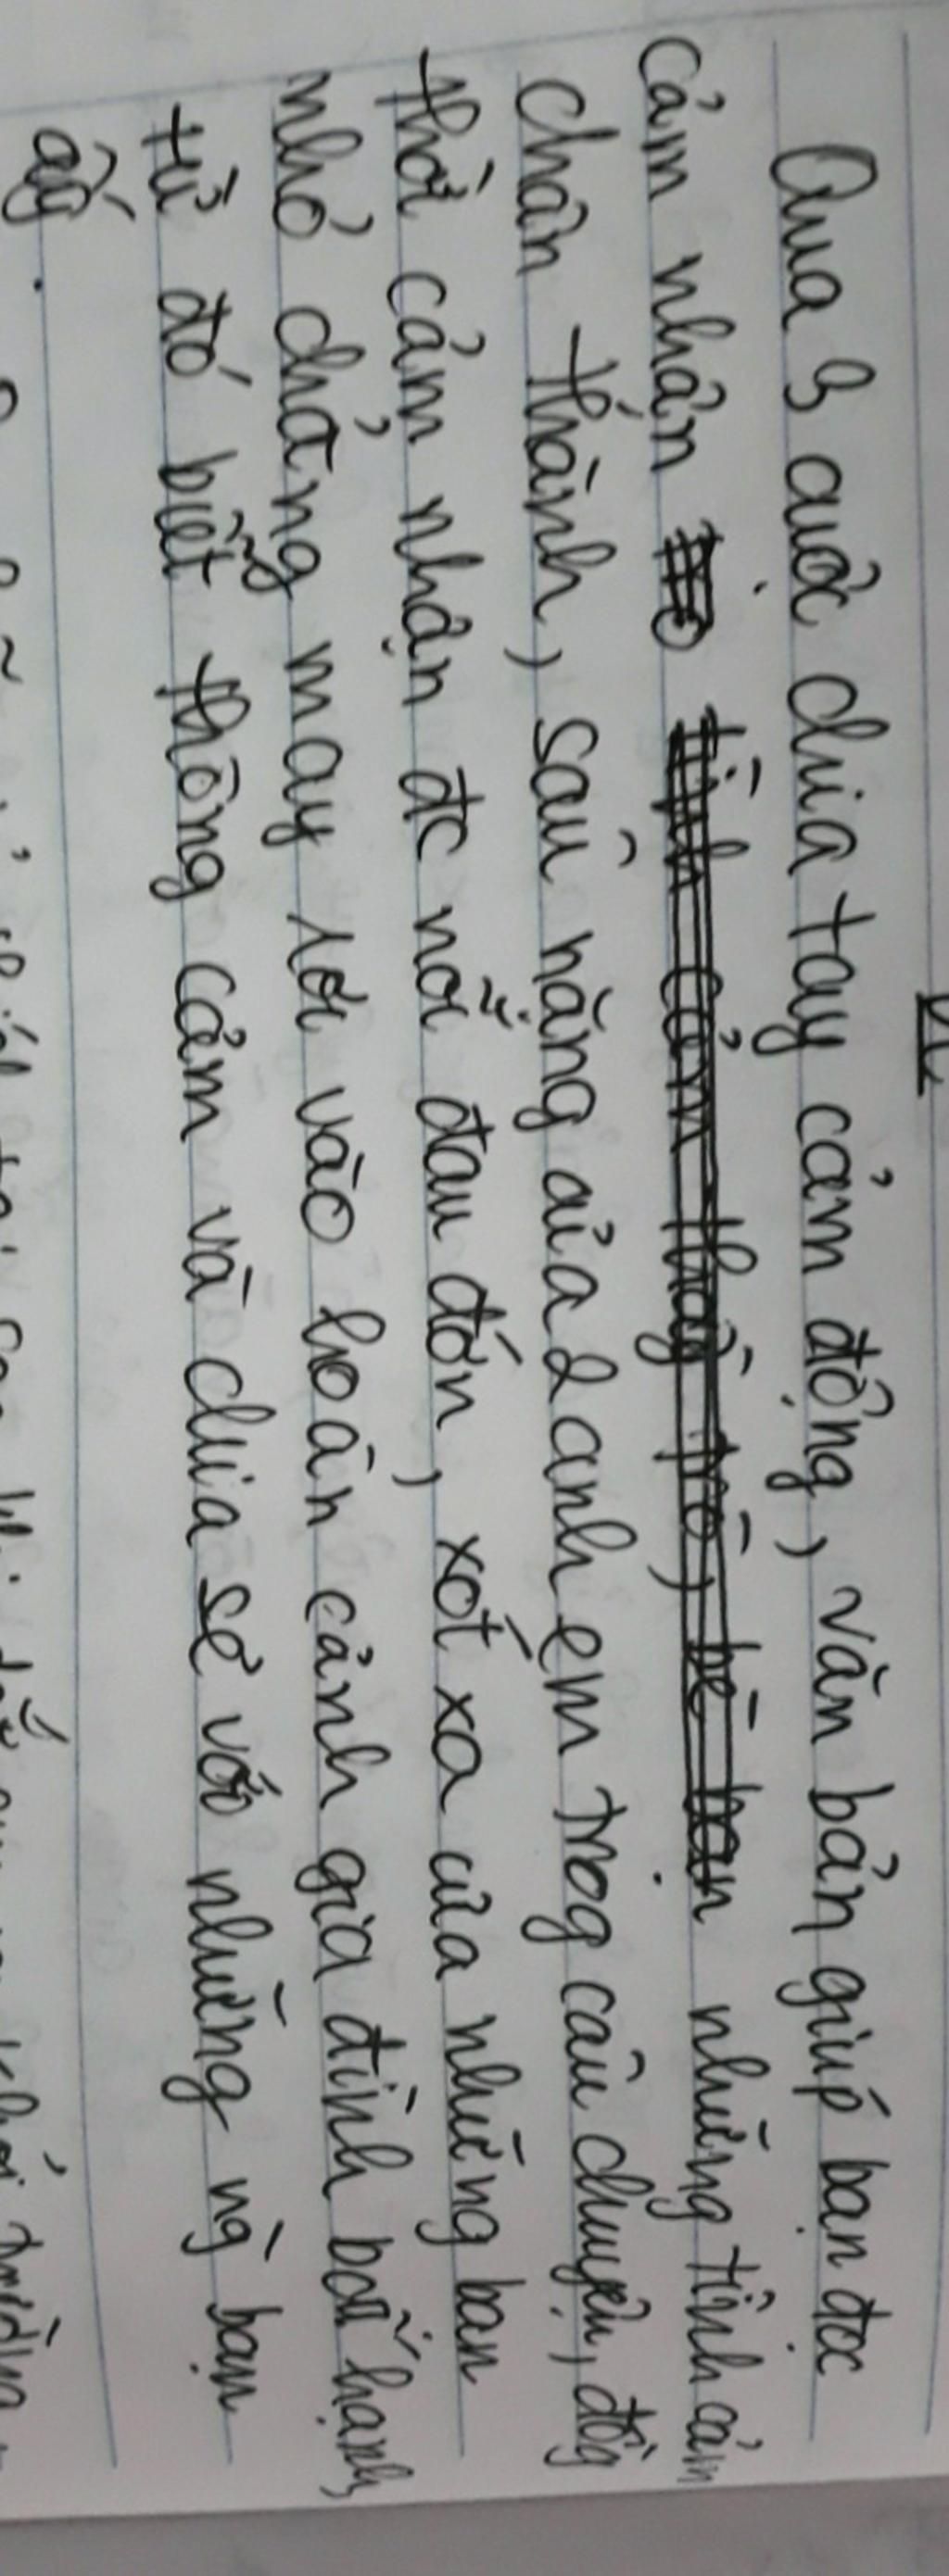 Qua 3 cuộc chia tay cảm động, văn bản giúp bạn đọc
cảm nhận những tình cảm
chân thành, sâu nặng của 2 anh em trog câu chuyện, đồg
thời cảm nhận đc nỗi đau đớn, xót xa của những bạn
nhỏ chẳng may rơi vào hoàn cảnh gia đình bất hạnh,
từ đó biết thông cảm và chia sẻ với những ng` bạn
ấy.